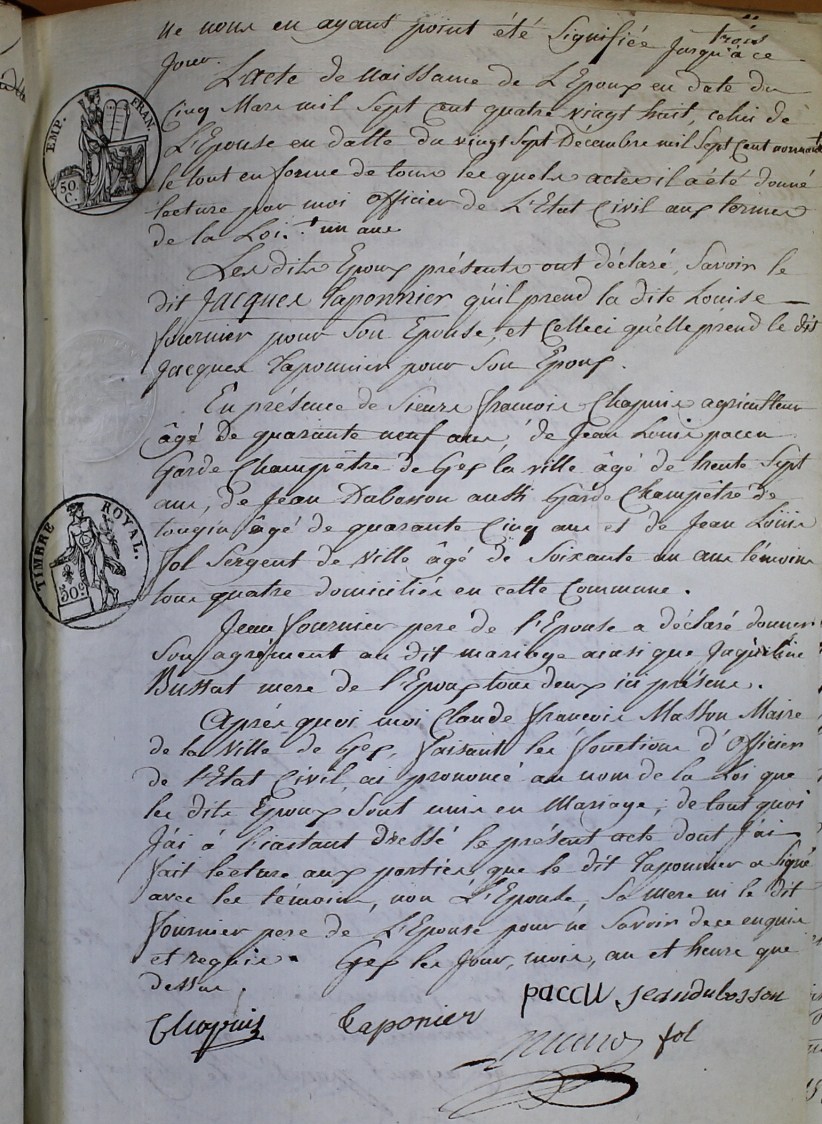 ne nous en ayant point été Signifiée jusqu'à ce
trois
Jour.
L'acte de Naissance de L'Epoux en date du
Cinq Mars mil Sept Cent quatre vingt huit, celui de
L'Epouse en datte du vingt Sept Décembre mil Sept Cent nonante
le tout en forme de tous les quels actes il a été donné
lecture par moi Officier de L'Etat Civil aux termes
de la Loi. un ans
Les dits Epoux présents ont déclaré, Savoir le
dit Jacques Taponnier qu'il prend la dite Louise
fournier pour Son Epouse, et Celleci qu'elle prend le dit
Jacques Taponnier pour Son Epoux.
En présence de Sieurs francois Chapuis agriculteur
âgé de quarante neuf ans, de Jean Louis paccu
Garde Champêtre de Gex la ville âgé de trente Sept
ans, de Jean Dubosson aussi Garde Champêtre de
tougin âgé de quarante Cinq ans et de Jean Louis
fol Sergent de Ville âgé de Soixante un ans témoins
tous quatre domiciliés en cette Commune.
Jean fournier pere de l'Epouse a déclaré donner
Son agrément au dit mariage ainsi que Jaqueline
Bussat mere de l'Epoux tous deux ici présens.
Après quoi moi Claude francois Masson Maire
de la Ville de Gex, faisant les fonctions d'Officier
de l'Etat Civil, ai prononcé au nom de la Loi que
les dits Epoux Sont unis en Mariage; de tout quoi
J'ai à l'instant Dressé le présent acte dont J'ai
fait lecture aux parties, que le dit Taponnier a Signé
avec les témoins, non L'Epouse, Sa mere ni le dit
fournier pere de L'Epouse pour ne Savoir de ce enquis
et requis. Gex les Jour, mois, an et heure que
dessus.
paccu Jeandubosson
Chapuis Taponier
fol
EMP. FRAN.
50 C.
TIMBRE ROYAL.
50c